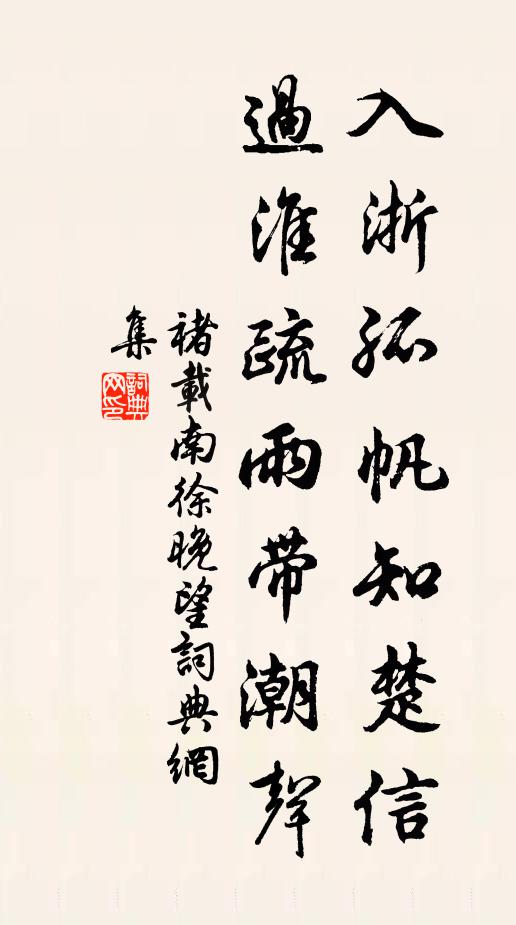 入浙孤帆知楚信
過淮疏雨帶潮聲
褚載南徐晚望詞典網
集
詞典网印